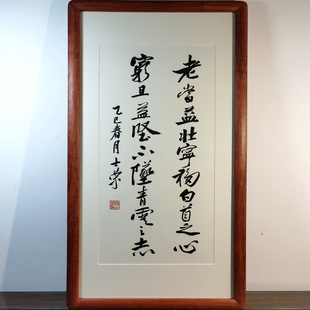 老當益壯寧移白首之心
窮且益堅不墜青雲之志
乙巳春月士榮